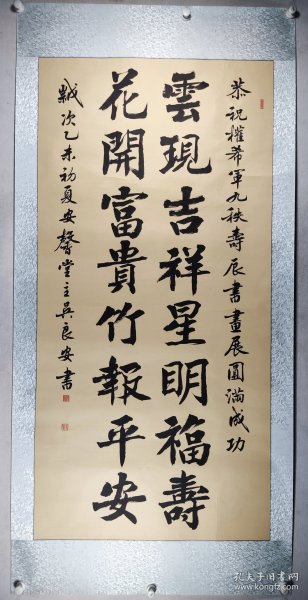 恭祝權希軍九秩壽辰書畫展圓滿成功
雲現吉祥星明福壽
花開富貴竹報平安
歲次乙未初夏安馨堂主吳良安書
孔夫子旧书网
www.kongfz.com